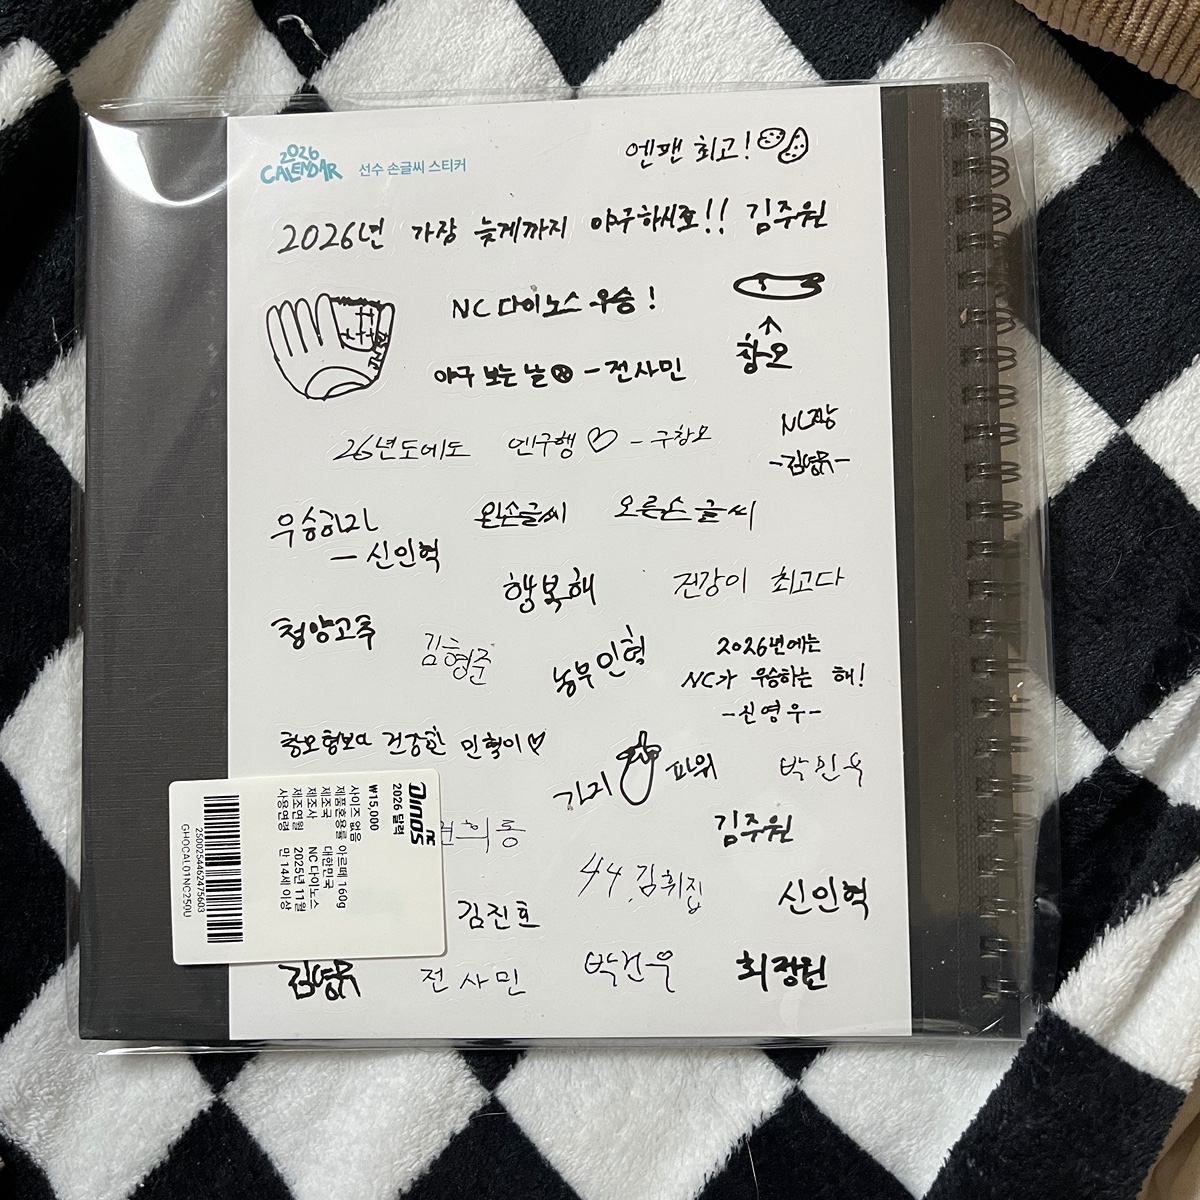 2026
CALENDAR 선수 손글씨 스티커
엔팬 최고!
2026년 가장 늦게까지 야구하시죠!! 김주원
NC 다이노스 우승!
창오
야구 보는 날 -전사민
26년도에도 엔구행♡ - 구창모
NC짱
-김영규-
우승하자
- 신인혁
왼손글씨 오른손글씨
행복해
건강이 최고다
청양고추
김형준
농부인혁
2026년에는
NC가 우승하는 해!
-신영우-
창모형보다 건강한 민혁이♡
가지 파워
박민우
희동
김주원
44. 김휘집
신인혁
김진호
김영규
전사민
박건우
최정원
Dinos NC
2026 달력
₩15,000
사이즈 없음
제품혼용률 아르떼 160g
제조국 대한민국
제조사 NC 다이노스
제조연월 2025년 11월
사용연령 만 14세 이상
2500254462475603
GHOCAL01NC250U